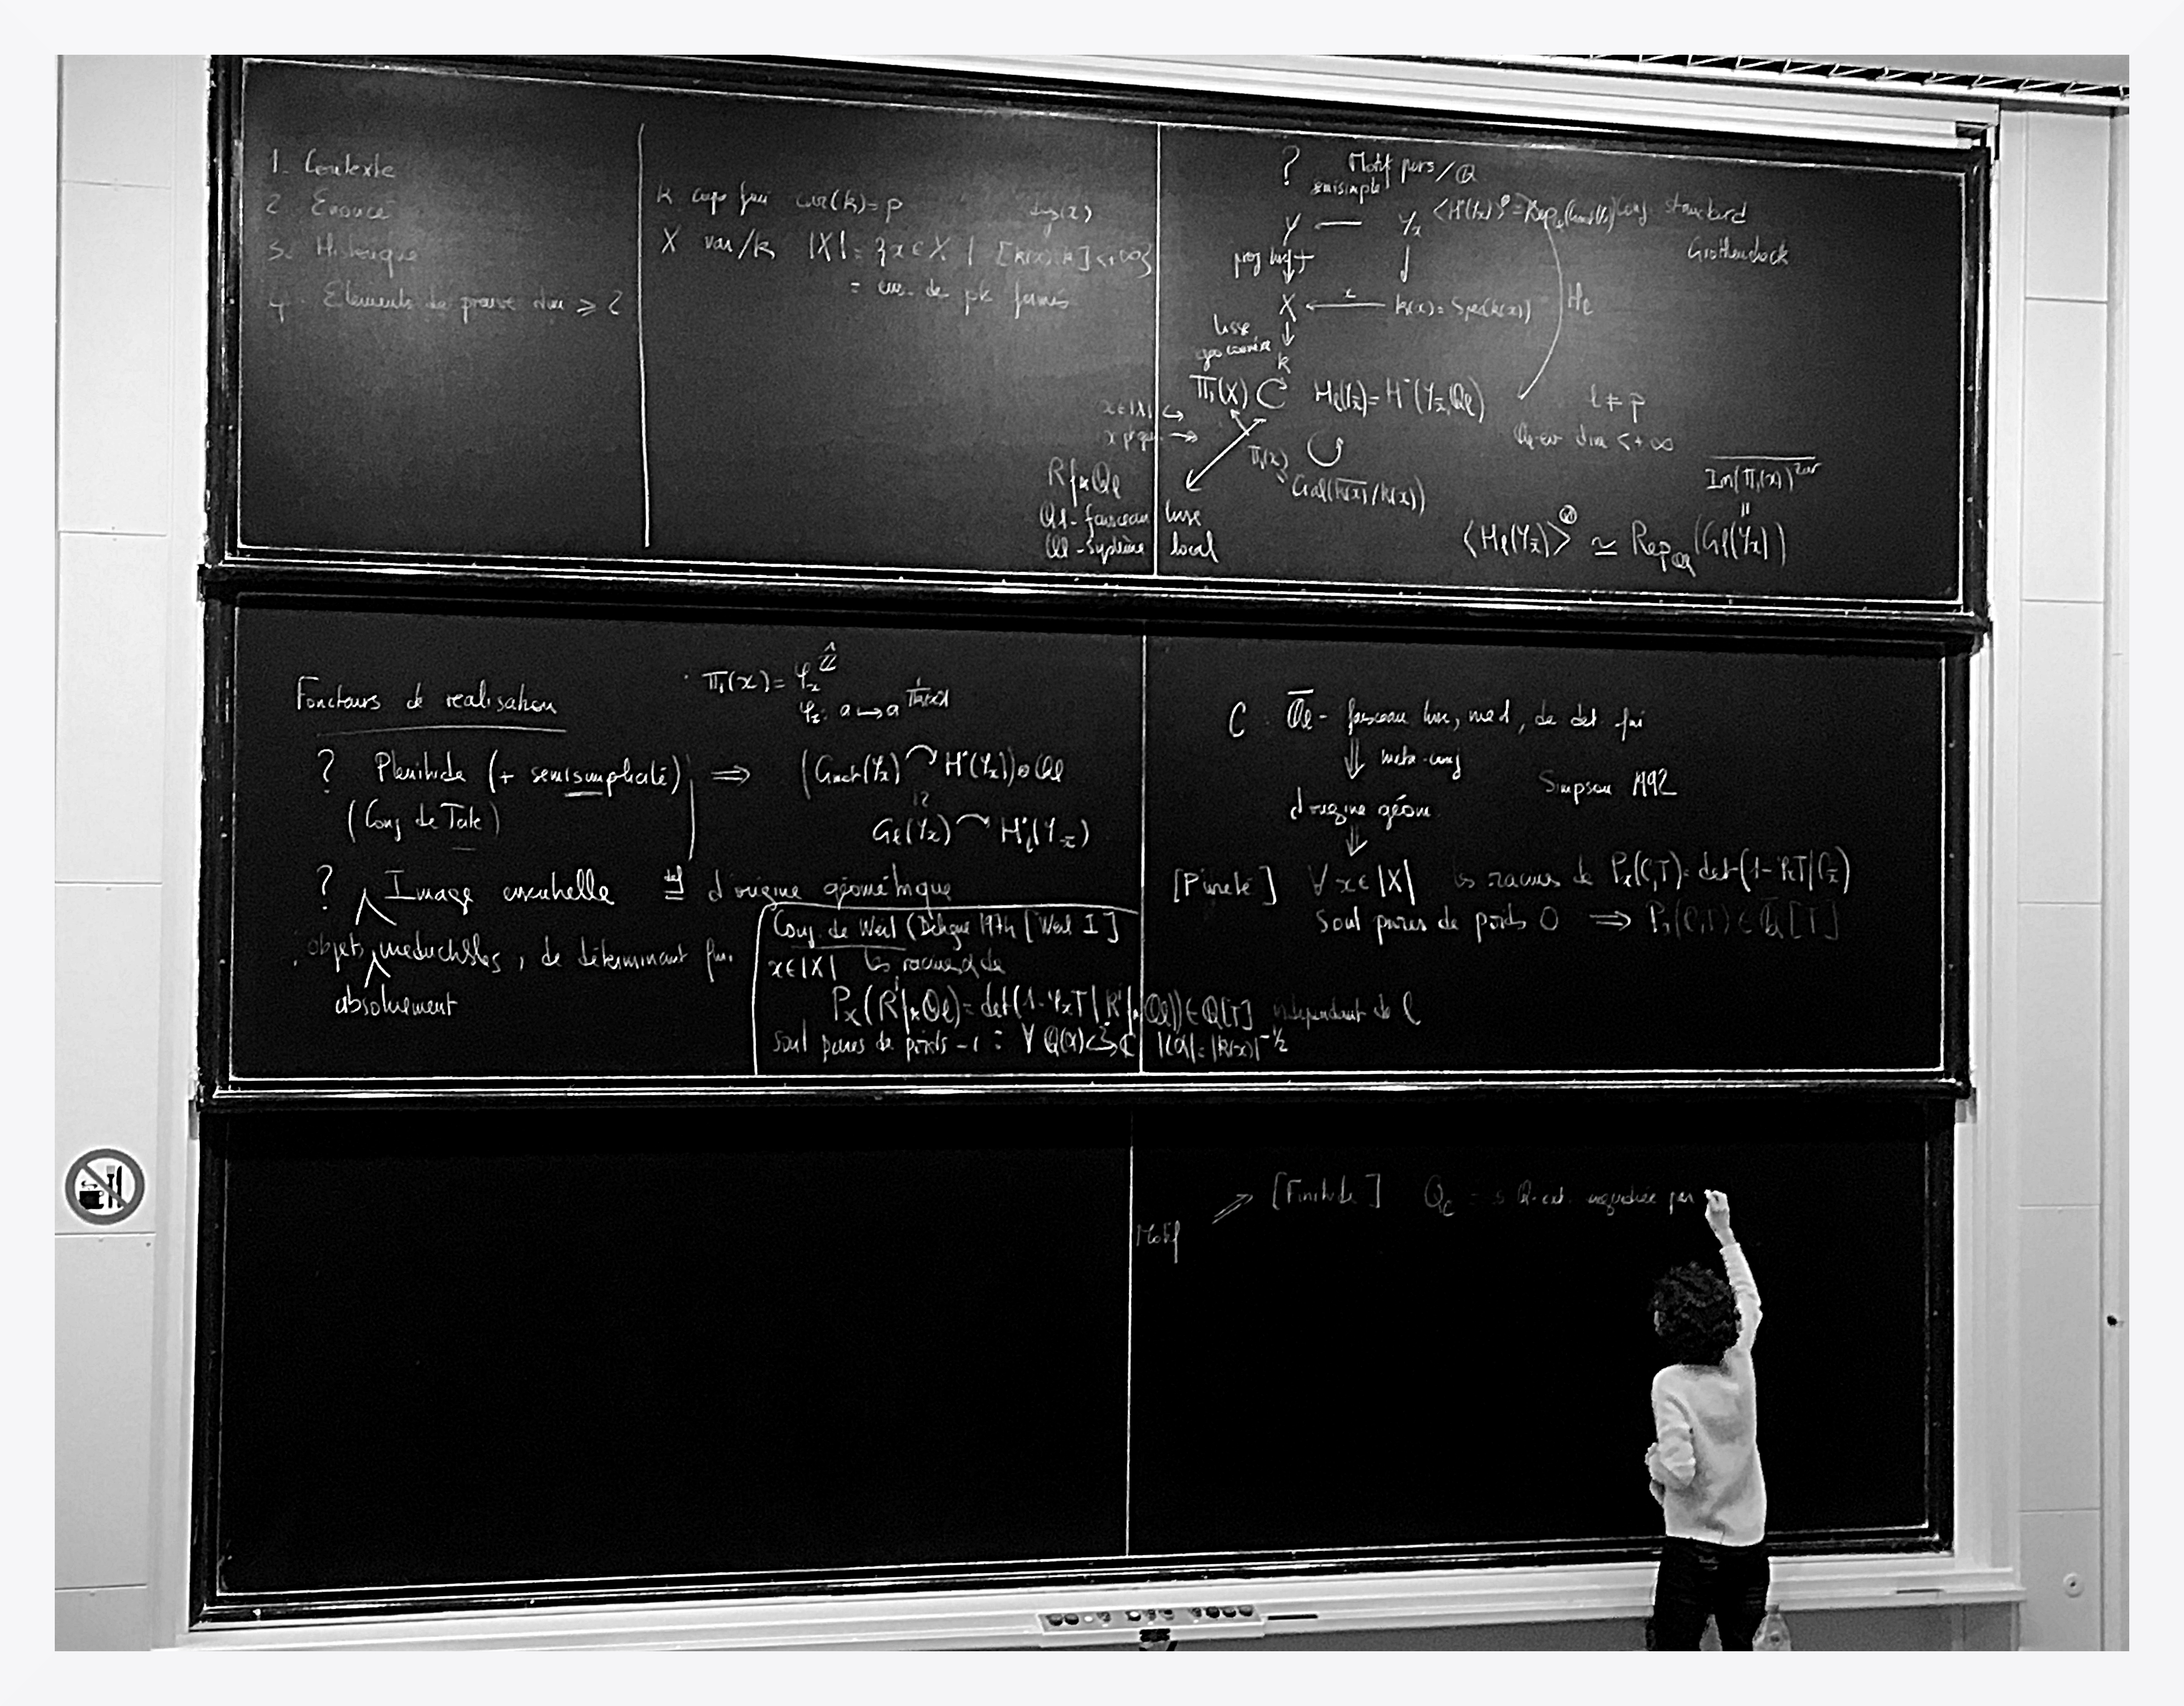 1. Contexte
2. Enoncé
3. Historique
4. Elements de preuve dim ⩾ 2
k corps fini car(k)=p
deg(x)
X var/k |X| = {x ∈ X | [k(x):k] < +∞}
= ens. de pts fermés
? Motifs purs/ℚ
semisimple
Y ← Y_x ⟨H(Y_x)⟩^⊗ = Rep_ℚ Conj. standard
Grothendieck
proj lisse f ↓ ↓
X ←x— k(x) = Spec(k(x)) H_ℓ
lisse
géo connexe ↓
k
Π₁(X) ↻ H_ℓ(Y_x̄) = H˙(Y_x̄, ℚℓ) ℓ ≠ p
x ∈ |X| ↪
ℚℓ-ev dim < +∞
x pt gen ↠
Π₁(x) ↻
Gal(k(x)‾/k(x))
R f_* ℚℓ
ℚℓ-faisceau lisse
ℚℓ-système local
Im(Π₁(x))‾^zar
॥
⟨H_ℓ(Y_x̄)⟩^⊗ ≃ Rep_ℚℓ(G_ℓ(Y_x))
Foncteurs de réalisation
Π₁(x) = φ_x^ℤ̂
φ_x : a ↦ a^1/|k(x)|
? Plenitude (+ semisimplicité) ⟹ (G_mot(Y_x) ↷ H˙(Y_x)) ⊗ ℚℓ
(Conj de Tate)
G_ℓ(Y_x) ↷ H˙_ℓ(Y_x̄)
? Image essentielle ≝ d'origine géométrique
objets irreductibles, de déterminant fini
absolument
Conj. de Weil (Deligne 1974 [Weil I]
x ∈ |X| les racines α de
P_x(R^i f_* ℚℓ) = det(1 - φ_x T | R^i f_* ℚℓ) ∈ ℚ[T] independant de ℓ
sont pures de poids -i : ∀ ℚ(α) ↪ ℂ |ι(α)| = |k(x)|^-i/2
C : ℚ̄ℓ - faisceau lisse, irred, de det fini
⇓ meta-conj
Simpson 1992
d'origine géom.
⇓
[Pureté] ∀ x ∈ |X| les racines de P_x(C,T) = det(1 - φ_x T | C_x̄)
sont pures de poids 0 ⟹ P_x(C,T) ∈ ℚ̄[T]
Motif ⟹ [Finitude] ℚ_C = ℚ-ext. engendrée par